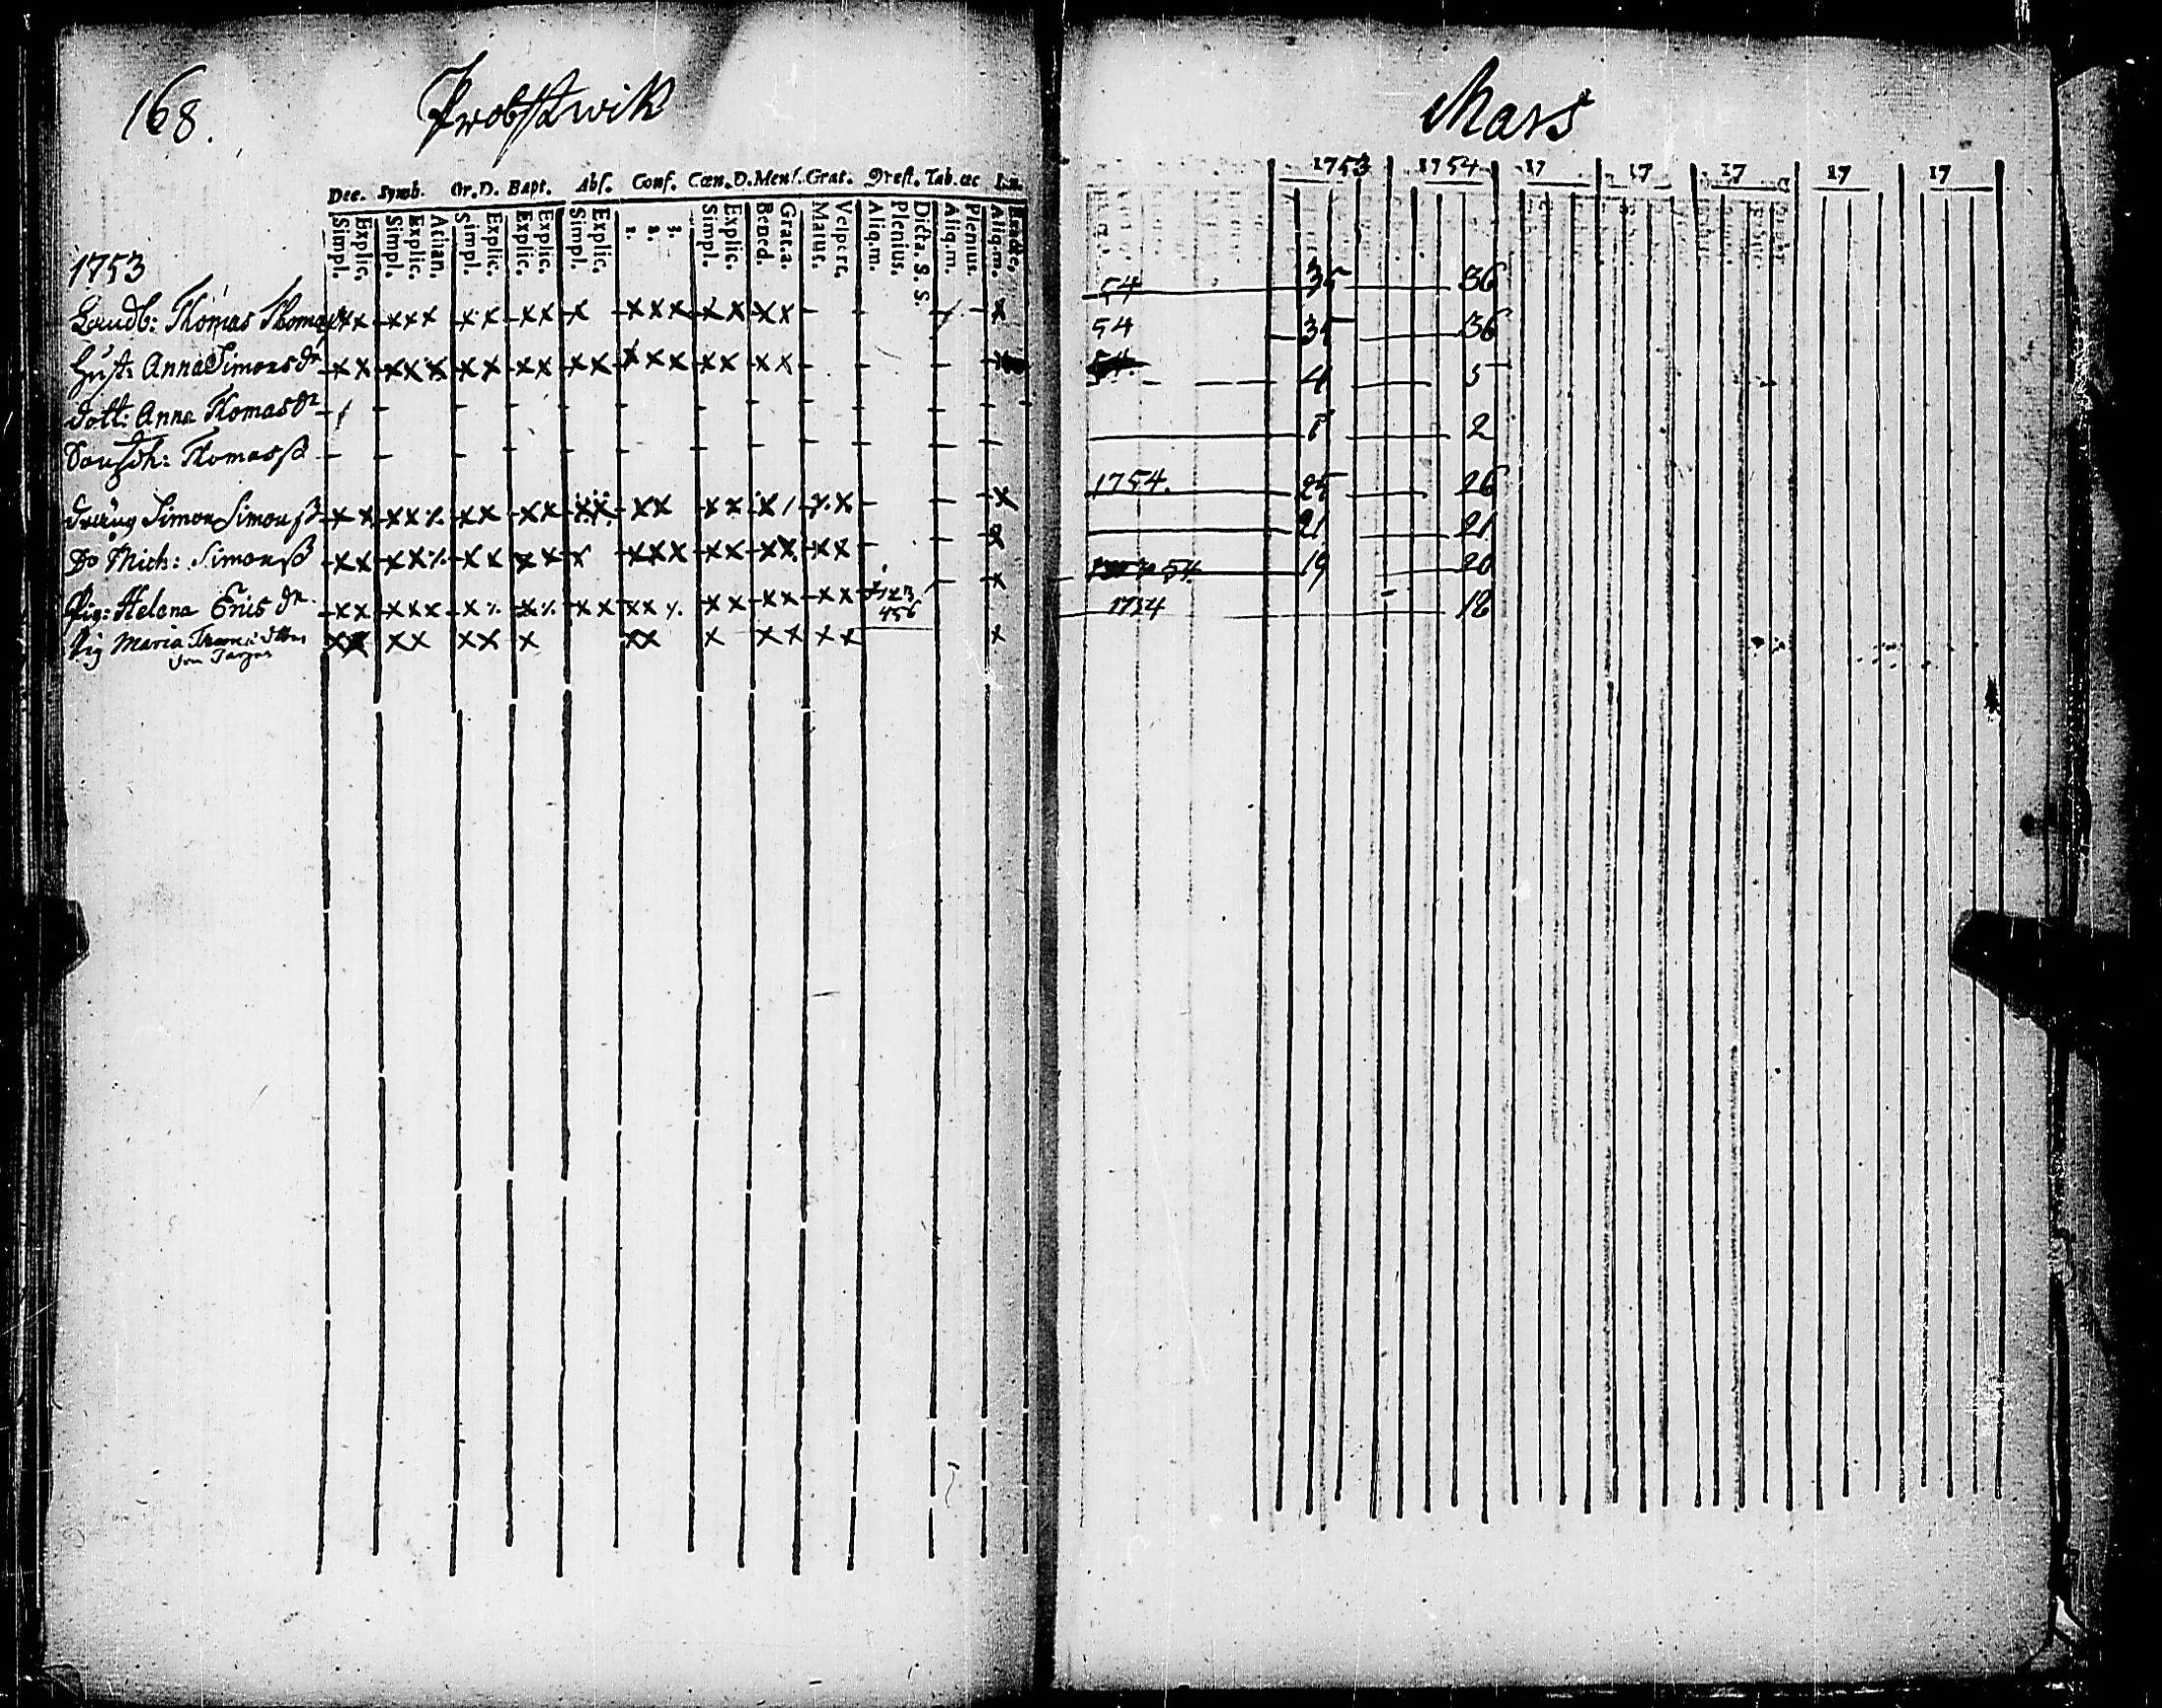 168. Probstwik
Dec. Symb. Or.D. Bapt. Abs. Conf. Cœn.D. Mens. Grat. Qvest. Tab.œc In.
Simpl. Explic. Simpl. Explic. Athan. Simpl. Explic. Explic. Explic. Simpl. Explic. 1. 2. 3. Simpl. Explic. Bened. Grat.a. Matut. Vespert. Aliq.m. Plenius. Dicta. S. S. Aliq.m. Plenius. Aliq.m.
1753
Landb: Thomas Thomasß xx xxx xx xx x xxx xx xx - - - x
Hust: Anna Simonsdr xx xxx xx xx xx xxx xx xx - - - x
dott: Anna Thomasdr - - - - - - - - - - - -
Son Joh: Thomasß - - - - - - - - - - - -
dräng Simon Simonß xx xx% xx xx xx xx xx x/ %x - - x
Do Mich: Simonß xx xx% xx xx x xxx xx xx xx - - x
Pig: Helena Ericsdr xx xxx x% x% xx xx% xx xx xx 123 456 x
Pig Maria xx xx xx x xx x xx xx x
Mars
1753 1754 17 17 17 17 17
54 35 36
54 35 36
4 5
1 2
1754. 25 26
21 21
54 19 20
1754 18